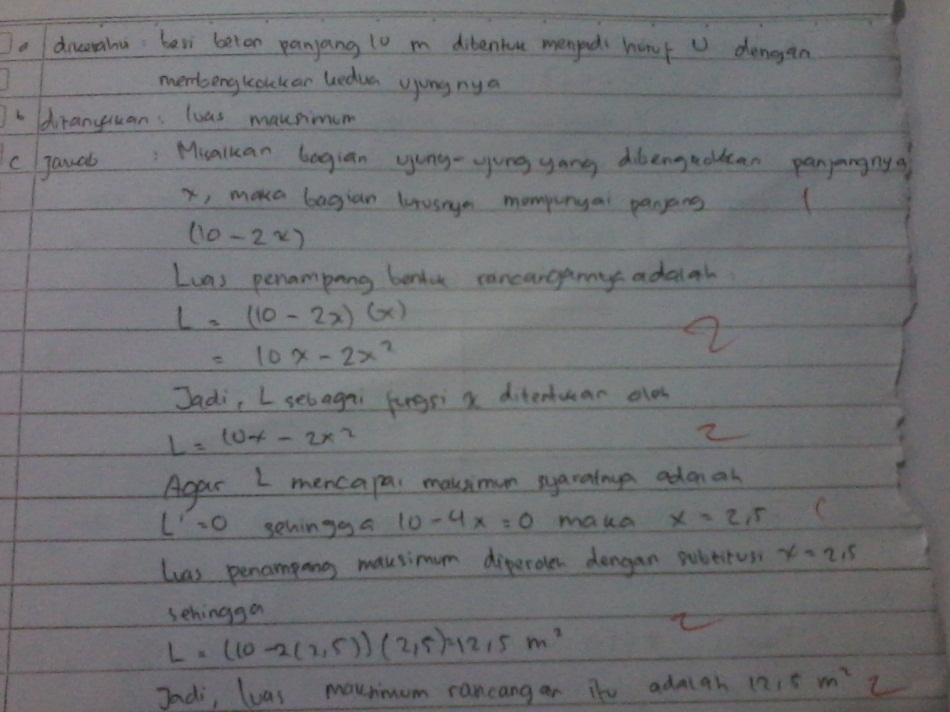 a diketahui : besi beton panjang 10 m dibentuk menjadi huruf U dengan
membengkokkan kedua ujungnya
b ditanyakan : luas maksimum
c jawab : Misalkan bagian ujung-ujung yang dibengkokkan panjangnya
x, maka bagian lurusnya mempunyai panjang 1
(10 - 2x)
Luas penampang bentuk rancangannya adalah
L = (10 - 2x) (x)
= 10x - 2x² 2
Jadi, L sebagai fungsi x ditentukan oleh
L = 10x - 2x² 2
Agar L mencapai maksimum syaratnya adalah
L' = 0 sehingga 10 - 4x = 0 maka x = 2,5 1
Luas penampang maksimum diperoleh dengan subtitusi x = 2,5
sehingga
L = (10 - 2(2,5)) (2,5) = 12,5 m² 2
Jadi, luas maksimum rancangan itu adalah 12,5 m² 2